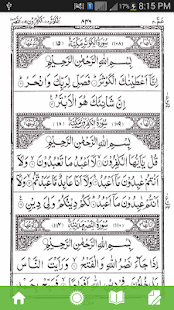 8:15 PM
سُوْرَةُ الْكَوْثَرِ مَكِّيَّةٌ
بِسْمِ اللهِ الرَّحْمٰنِ الرَّحِيْمِ
اِنَّاۤ اَعْطَيْنٰكَ الْكَوْثَرَ فَصَلِّ لِرَبِّكَ وَانْحَرْ
اِنَّ شَانِئَكَ هُوَ الْاَبْتَرُ
بِسْمِ اللهِ الرَّحْمٰنِ الرَّحِيْمِ
قُلْ يٰۤاَيُّهَا الْكٰفِرُوْنَ لَاۤ اَعْبُدُ مَا تَعْبُدُوْنَ وَلَاۤ
اَنْتُمْ عٰبِدُوْنَ مَاۤ اَعْبُدُ وَلَاۤ اَنَا عَابِدٌ مَّا عَبَدْتُّمْ وَلَاۤ
اَنْتُمْ عٰبِدُوْنَ مَاۤ اَعْبُدُ لَكُمْ دِيْنُكُمْ وَلِيَ دِيْنِ
سُوْرَةُ النَّصْرِ مَدَنِيَّةٌ
بِسْمِ اللهِ الرَّحْمٰنِ الرَّحِيْمِ
اِذَا جَآءَ نَصْرُ اللهِ وَالْفَتْحُ وَرَاَيْتَ النَّاسَ